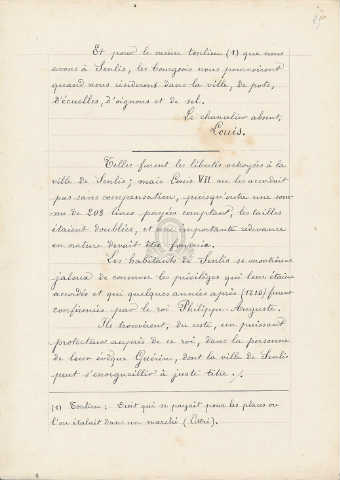 Et pour le même tonlieu (1) que nous
avons à Senlis, les bourgeois nous pourvoiront
quand nous viendrons dans la ville, de pots,
d'écuelles, d'oignons et de sel.
Le chancelier absent,
Louis.
Telles furent les libertés octroyées à la
ville de Senlis; mais Louis VII ne les accordait
pas sans compensation, puisqu'outre une som-
me de 208 livres payées comptant, les tailles
étaient doublées, et une importante redevance
en nature devait être fournie.
Les habitants de Senlis se montrèrent
jaloux de conserver les privilèges qui leur étaient
accordés et qui quelques années après (1210) furent
confirmés par le roi Philippe Auguste.
Ils trouvèrent, du reste, un puissant
protecteur auprès de ce roi, dans la personne
de leur évêque Guérin, dont la ville de Senlis
peut s'enorgueillir à juste titre./.
(1) Tonlieu: Droit qui se payait pour les places où
l'on étalait dans un marché (Littré).